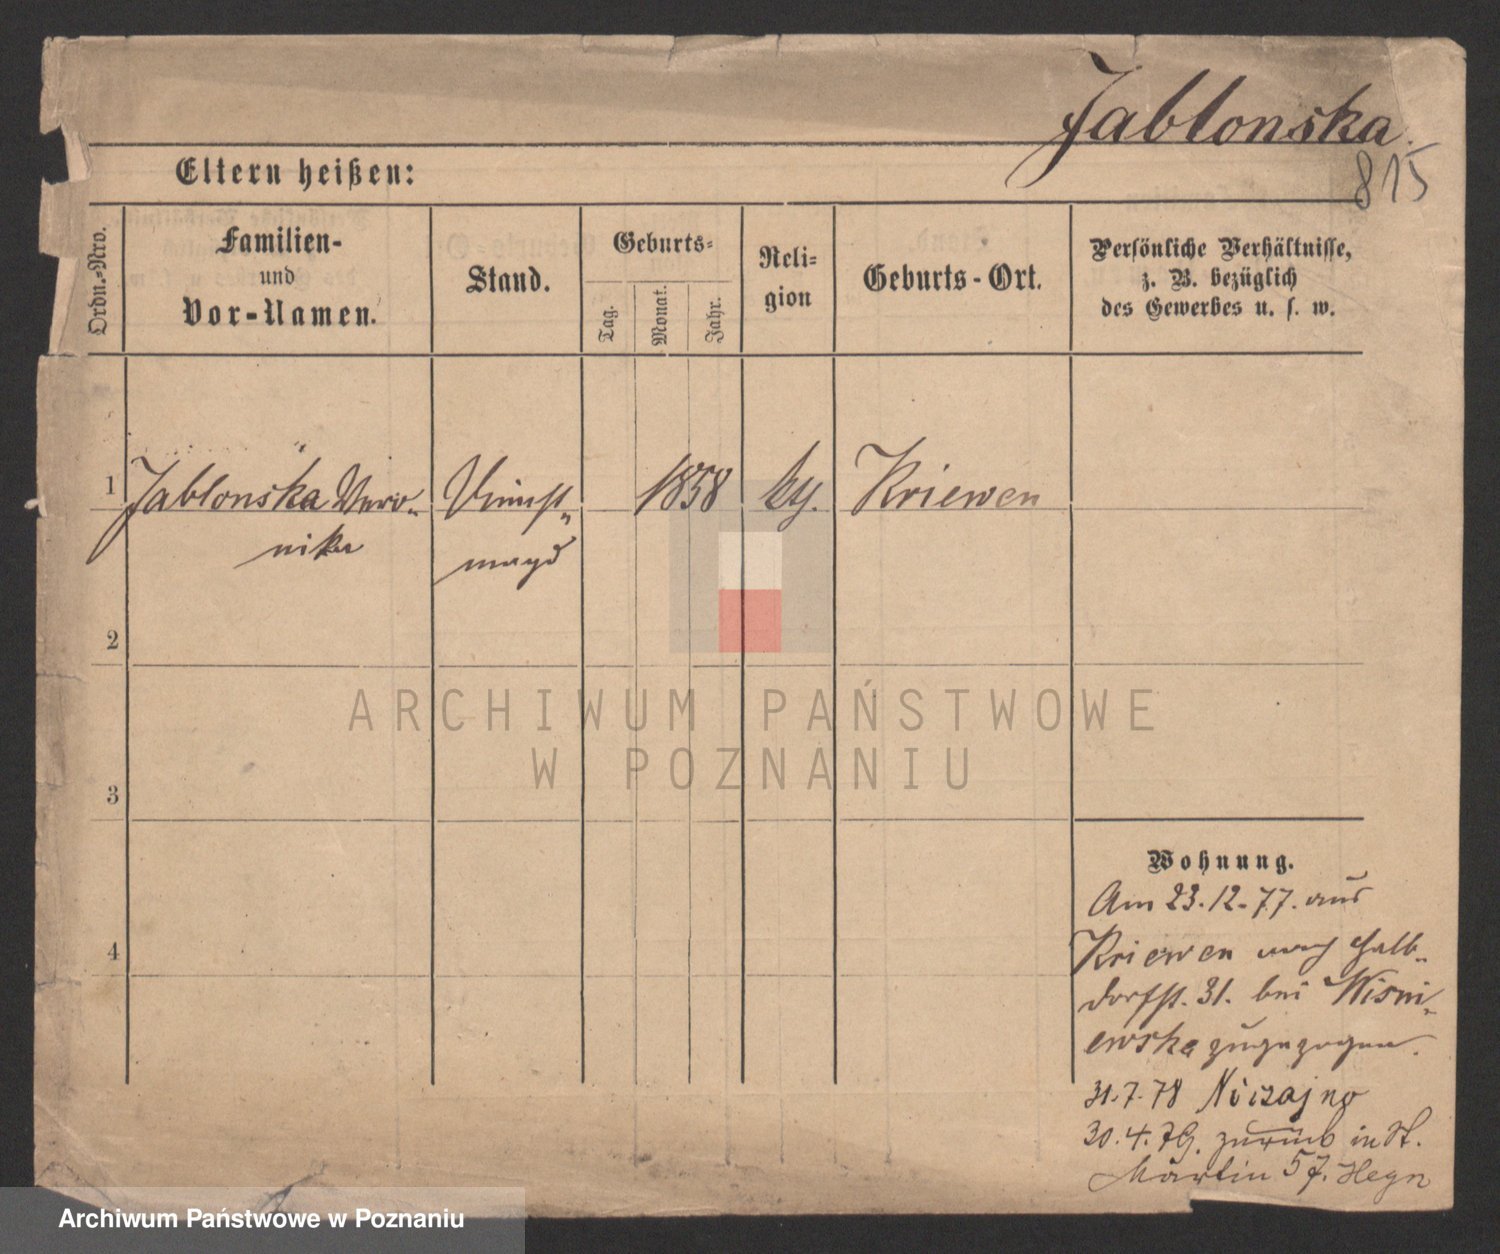 Jablonska.
815
Eltern heißen:
Ordn.-Nro.
Familien-
und
Vor-Namen.
Stand.
Geburts-
Tag.
Monat.
Jahr.
Reli-
gion
Geburts-Ort.
Persönliche Verhältnisse,
z. B. bezüglich
des Gewerbes u. s. w.
1
Jablonska Vero-
nika
Dienst-
magd
1858
Kriewen
2
3
4
Wohnung.
Am 23.12.77. aus
Kriewen nach Halb-
dorfst. 31. bei Wisni-
ewska zugezogen.
31.7.78
30.4.79. zurück in St.
Martin 57. Hegn
ARCHIWUM PAŃSTWOWE
W POZNANIU
Archiwum Państwowe w Poznaniu